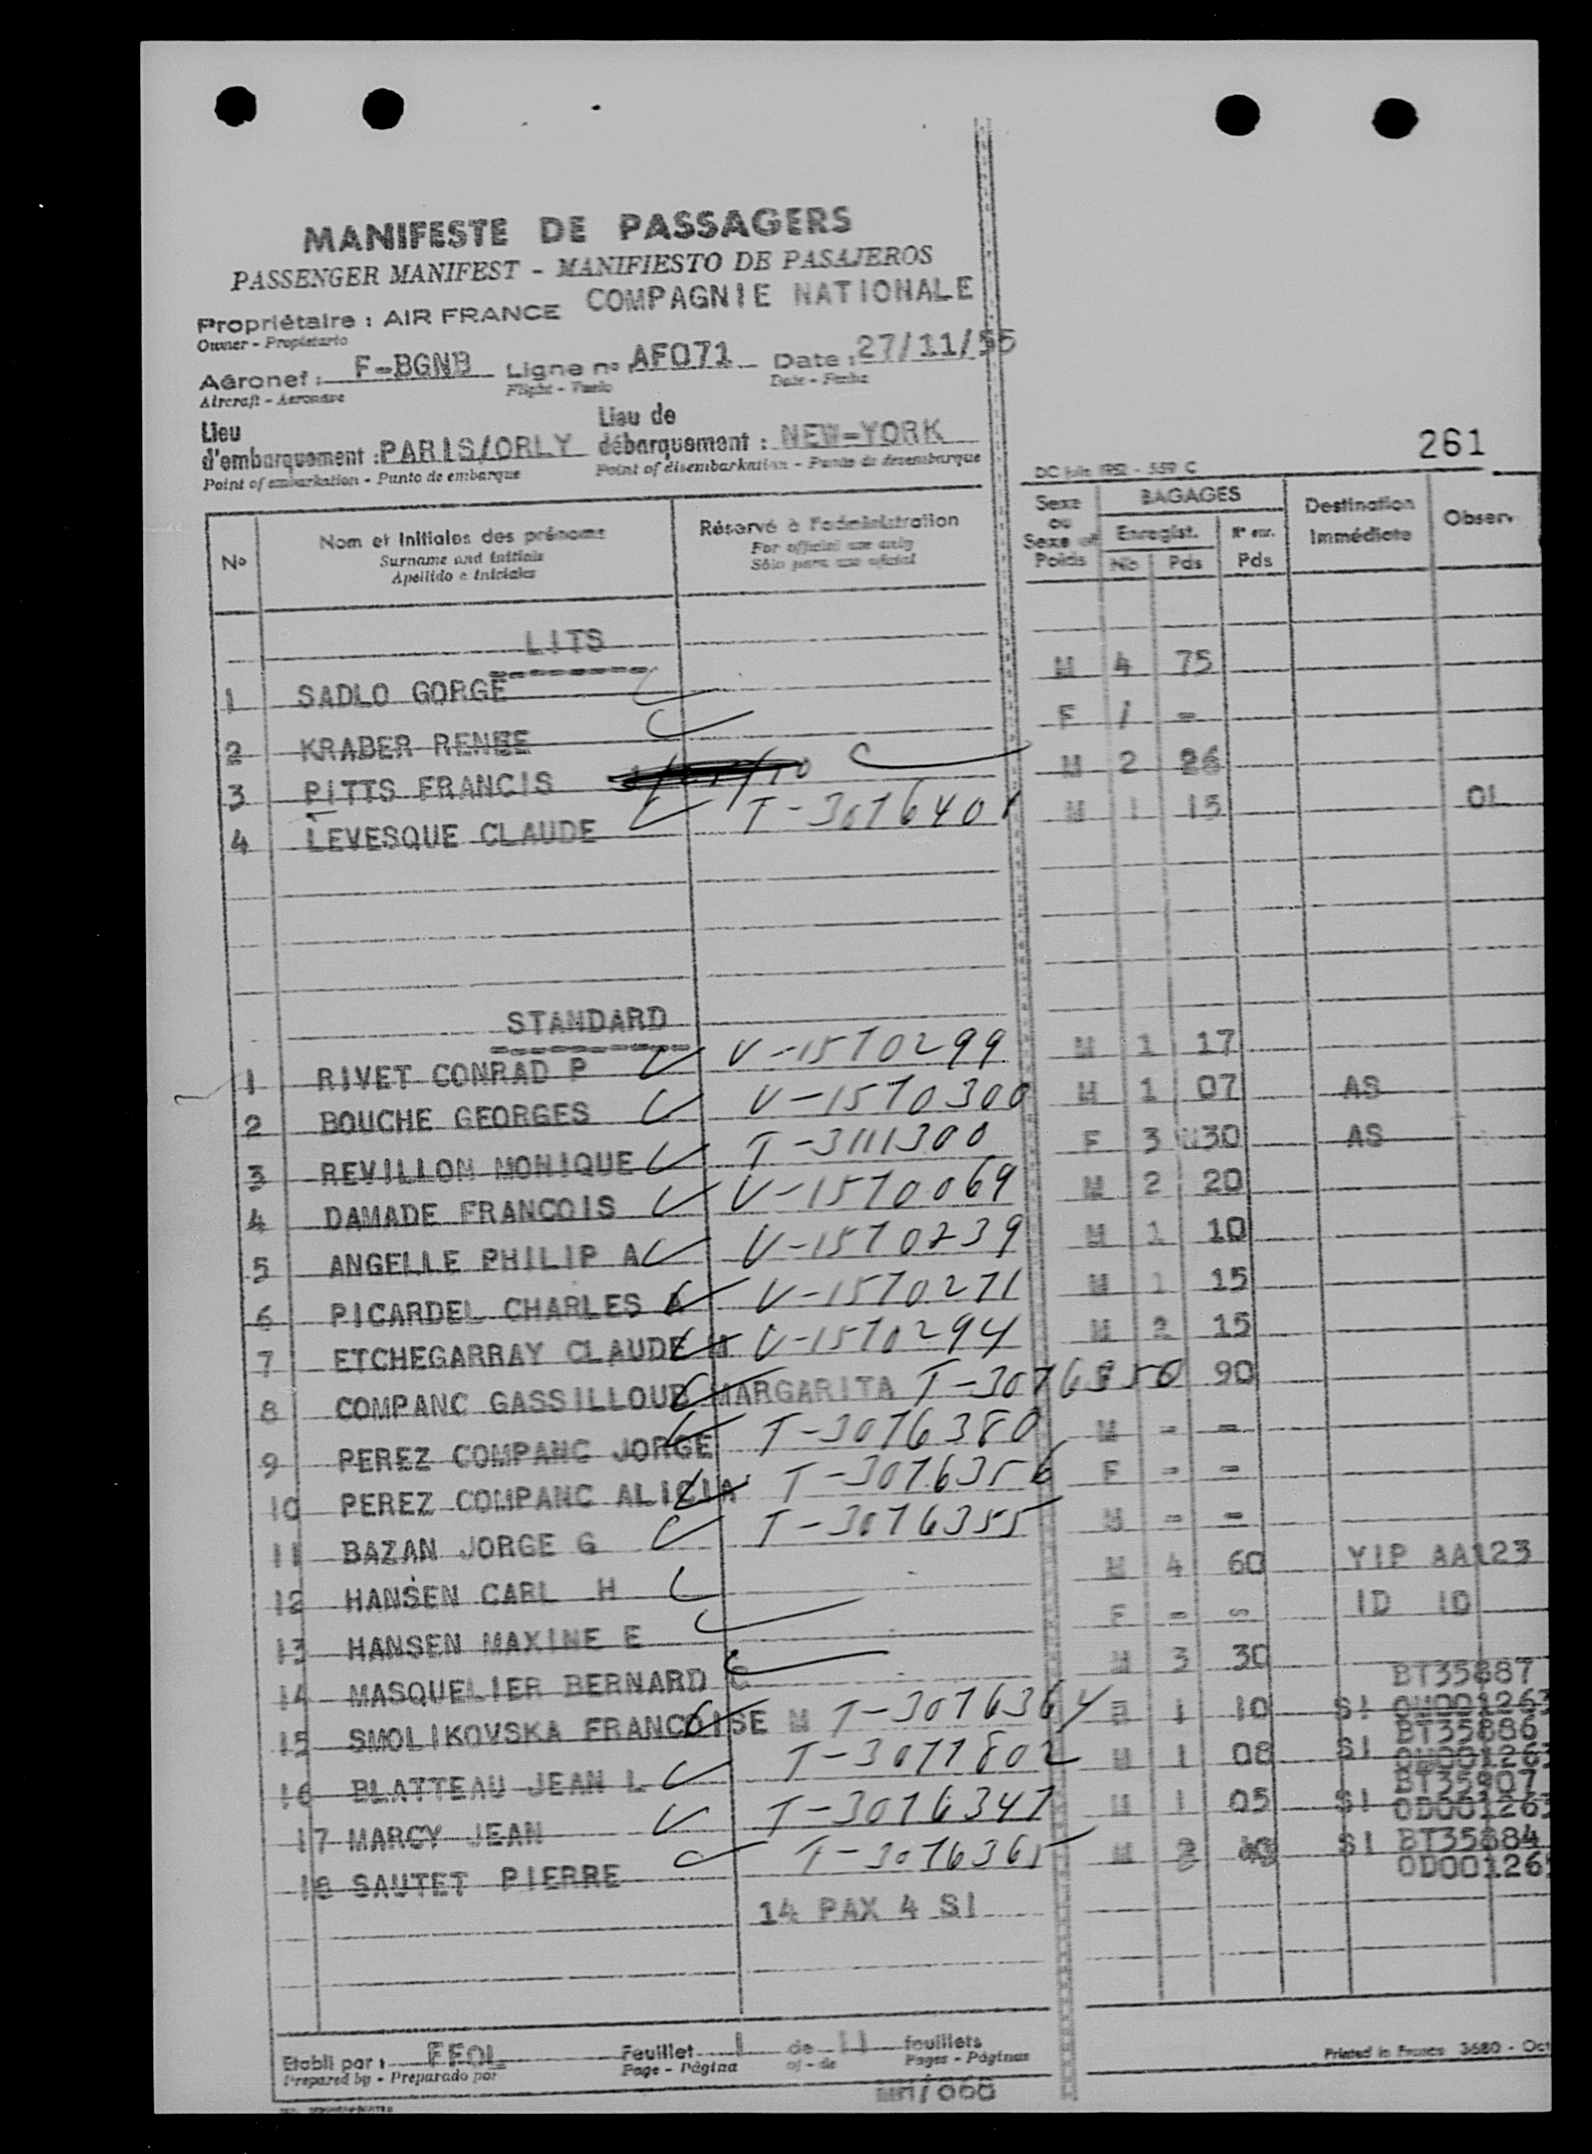 MANIFESTE DE PASSAGERS
PASSENGER MANIFEST - MANIFIESTO DE PASAJEROS
Propriétaire : AIR FRANCE COMPAGNIE NATIONALE
Owner - Propietario
Aéronef : F-BGNB Ligne nº AF071 Date : 27/11/55
Aircraft - Aeronave Flight - Vuelo Date - Fecha
Lieu d'embarquement : PARIS/ORLY Lieu de débarquement : NEW-YORK
Point of embarkation - Punto de embarque Point of disembarkation - Punto de desembarque
261
DC juin 1952 - 559 C
No Nom et Initiales des prénoms Réservé à l'administration Sexe ou Sexe et Poids BAGAGES Destination Immédiate Observ.
Surname and Initials For official use only Enregist. Nº enr.
Apellido e Iniciales Sólo para uso oficial Nb Pds Pds
LITS
1 SADLO GORGE M 4 75
2 KRABER RENEE F 1 -
3 PITTS FRANCIS M 2 26
4 LEVESQUE CLAUDE T-3076401 M 1 15 OL
STANDARD
1 RIVET CONRAD P V-1570299 M 1 17
2 BOUCHE GEORGES V-1570300 M 1 07 AS
3 REVILLON MONIQUE T-3111300 F 3 30 AS
4 DAMADE FRANCOIS V-1570069 M 2 20
5 ANGELLE PHILIP A V-1570239 M 1 10
6 PICARDEL CHARLES A V-1570271 M 1 15
7 ETCHEGARRAY CLAUDE M V-1570294 M 2 15
8 COMPANC GASSILLOUB MARGARITA 90
9 PEREZ COMPANC JORGE T-3076380 M - -
10 PEREZ COMPANC ALICIA T-3076356 F - -
11 BAZAN JORGE G T-3076355 M - -
12 HANSEN CARL H M 4 60 YIP AA123
13 HANSEN MAXINE E F - - ID ID
14 MASQUELIER BERNARD G M 3 30
15 SMOLIKOVSKA FRANCOISE M T-3076364 1 10 SI BT35887
16 BLATTEAU JEAN L T-3077802 M 1 08 SI BT35886
17 MARCY JEAN T-3076347 M 1 05 SI OD001263
18 SAUTET PIERRE T-3076365 M SI BT35884
OD00126
14 PAX 4 SI
Etabli par : FFOL Feuillet 1 de 11 feuillets
Prepared by - Preparado por Page - Página of - de Pages - Páginas
Printed in France 3680 - Oct